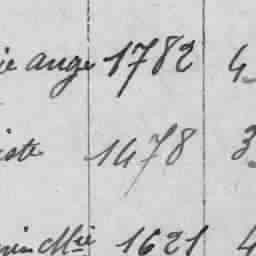 ie ange 1782 4
iste 1478 3
Mie 1621 4